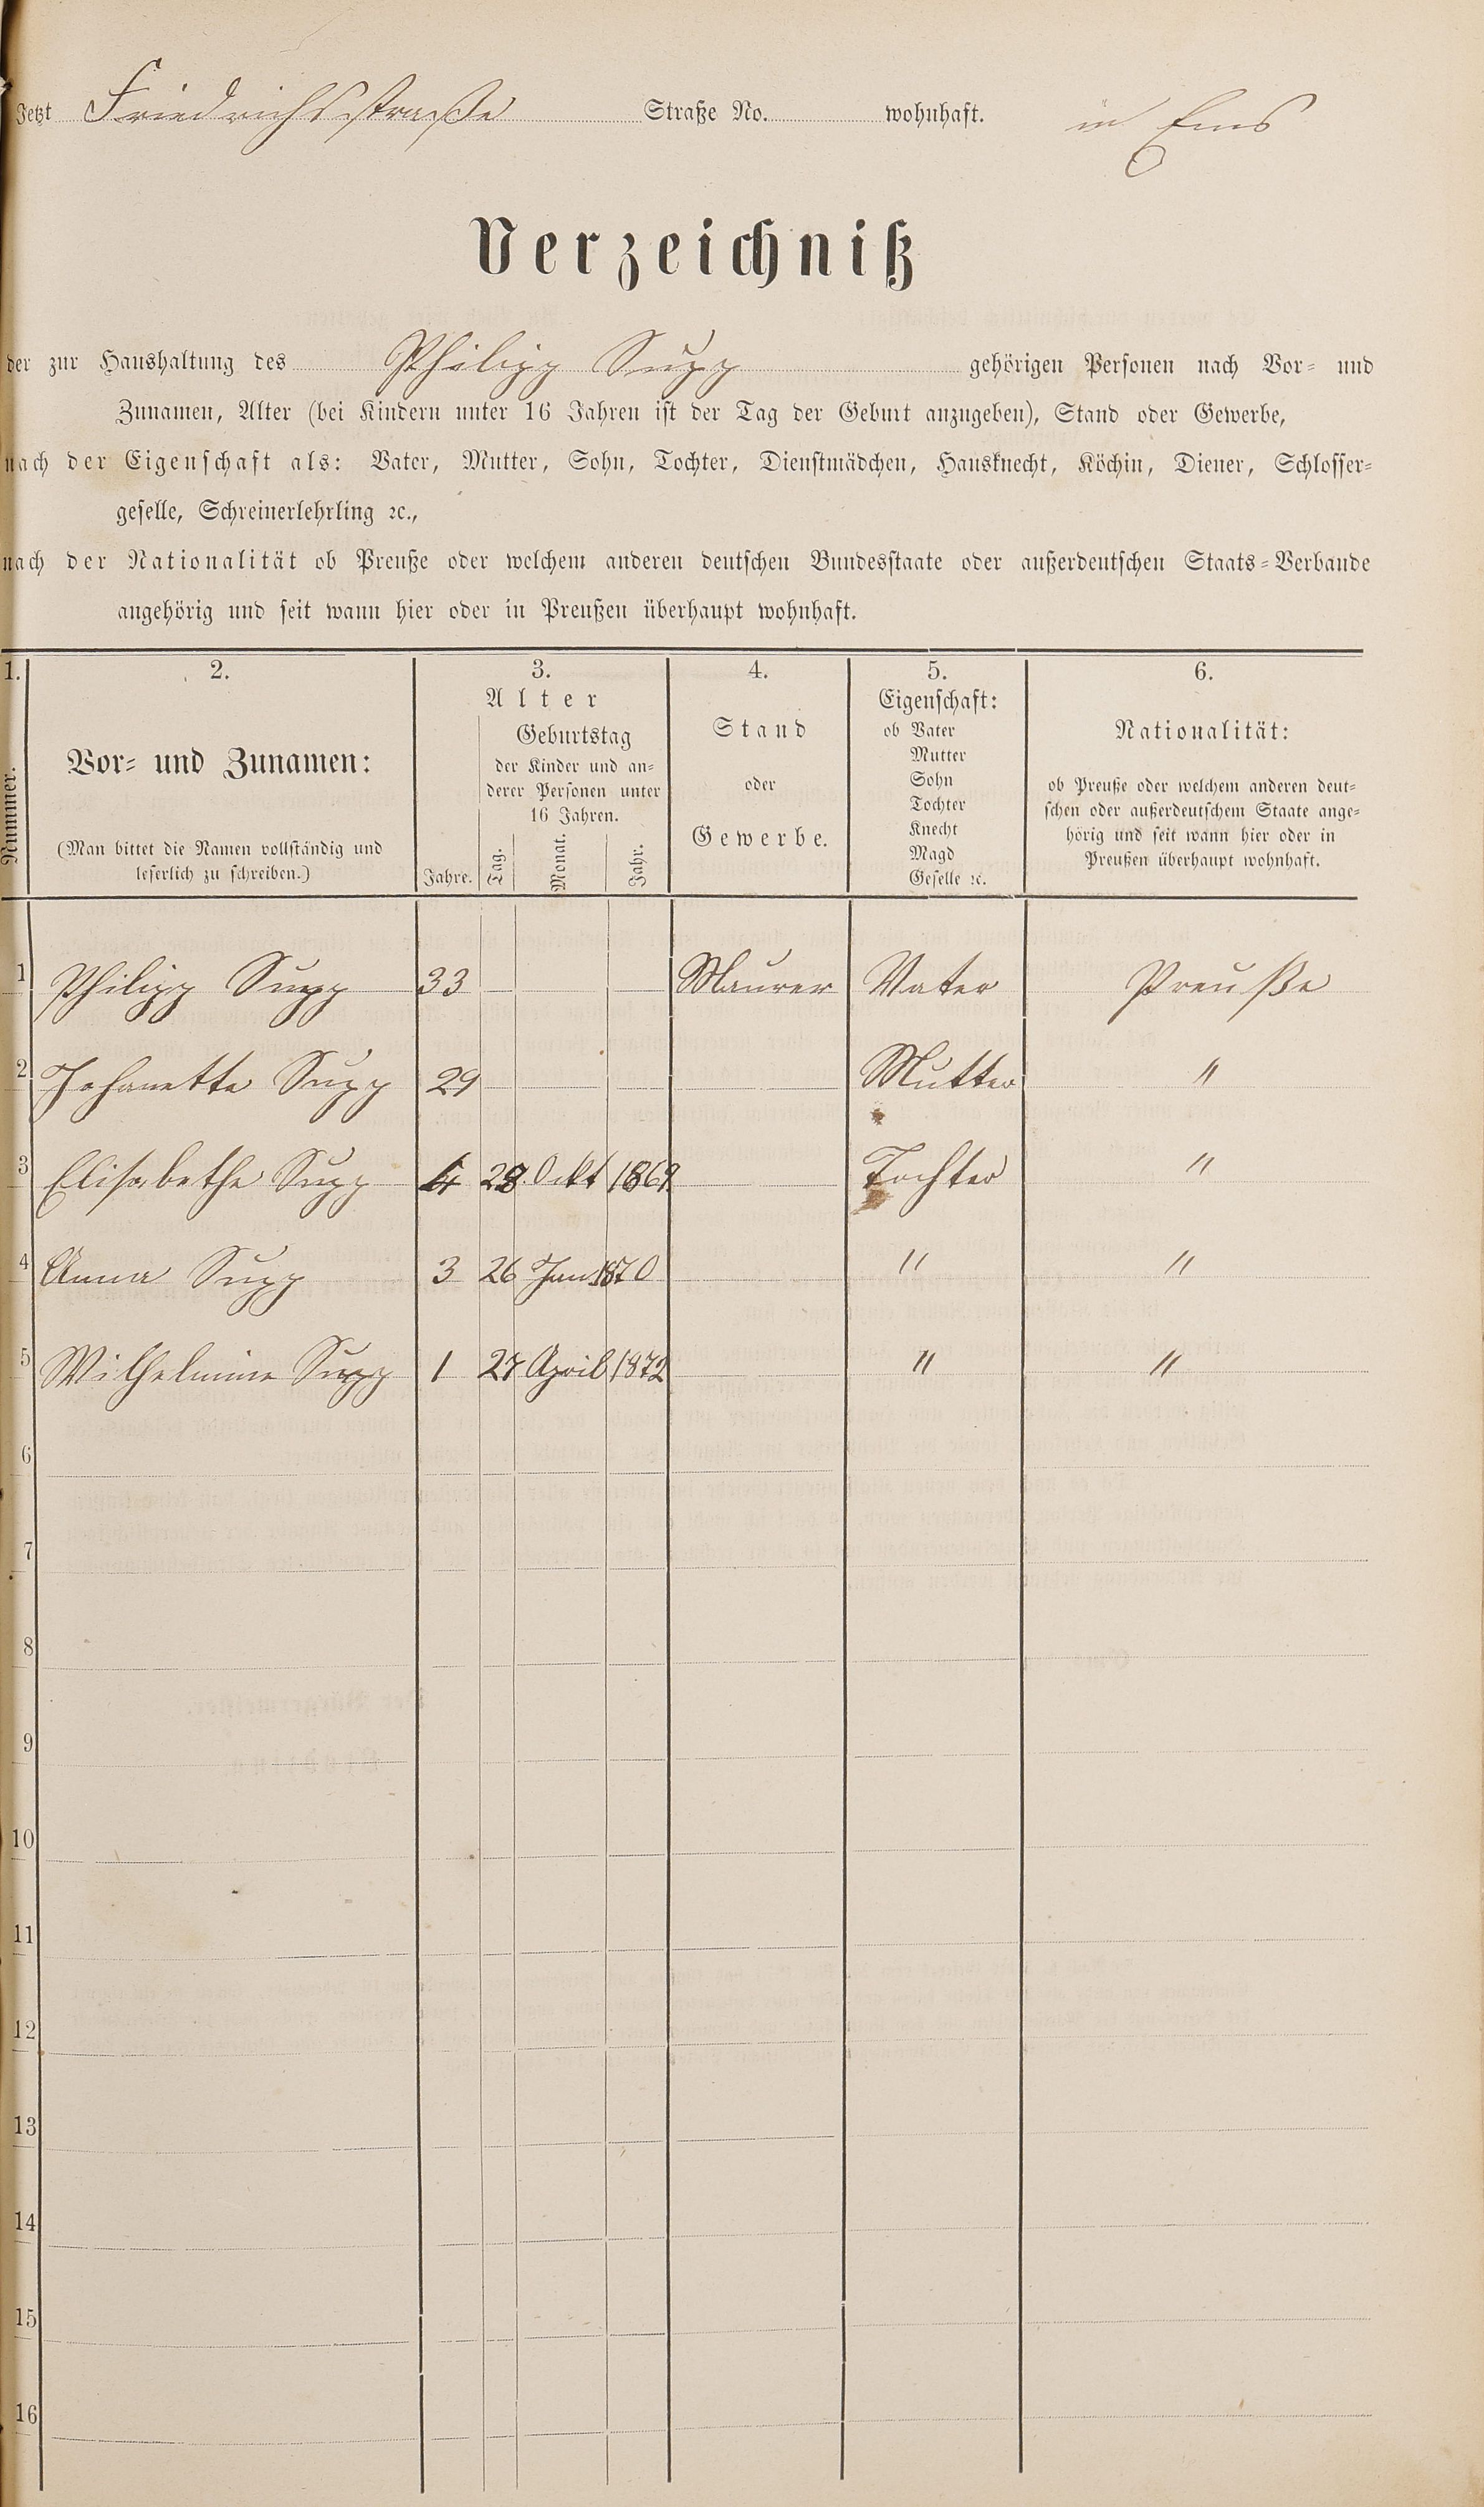 Jetzt Friedrichsstraße Straße No. wohnhaft. in Ems
Verzeichniß
der zur Haushaltung des Philipp Supp gehörigen Personen nach Vor- und
Zunamen, Alter (bei Kindern unter 16 Jahren ist der Tag der Geburt anzugeben), Stand oder Gewerbe,
nach der Eigenschaft als: Vater, Mutter, Sohn, Tochter, Dienstmädchen, Hausknecht, Köchin, Diener, Schlosser-
geselle, Schreinerlehrling ꝛc.,
nach der Nationalität ob Preuße oder welchem anderen deutschen Bundesstaate oder außerdeutschen Staats-Verbande
angehörig und seit wann hier oder in Preußen überhaupt wohnhaft.
1. 2. 3. 4. 5. 6.
Nummer.
Vor- und Zunamen:
(Man bittet die Namen vollständig und
leserlich zu schreiben.)
Alter
Jahre.
Geburtstag
der Kinder und an-
derer Personen unter
16 Jahren.
Tag. Monat. Jahr.
Stand
oder
Gewerbe.
Eigenschaft:
ob Vater
Mutter
Sohn
Tochter
Knecht
Magd
Geselle ꝛc.
Nationalität:
ob Preuße oder welchem anderen deut-
schen oder außerdeutschem Staate ange-
hörig und seit wann hier oder in
Preußen überhaupt wohnhaft.
1 Philipp Supp 33 Maurer Vater Preuße
2 Johanette Supp 29 Mutter "
3 Elisabethe Supp 4 28. Okt 1869. Tochter "
4 Anna Supp 3 26 Jan 1870 " "
5 Wilhelmine Supp 1 27 April 1872 " "
6
7
8
9
10
11
12
13
14
15
16